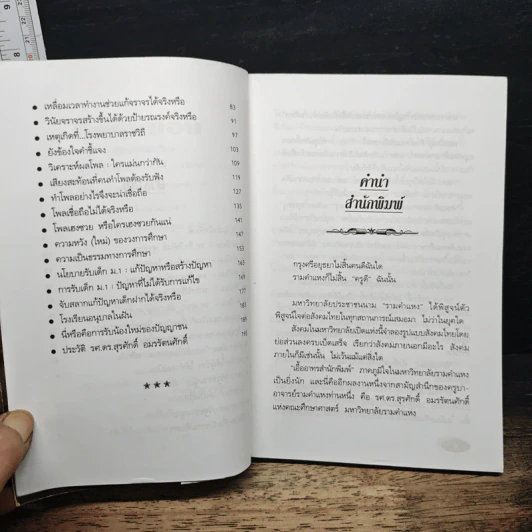 เหลื่อมเวลาทำงานช่วยแก้จราจรได้จริงหรือ 83
วินัยจราจรสร้างขึ้นได้ด้วยป้ายรณรงค์จริงหรือ 91
เหตุเกิดที่...โรงพยาบาลราชวิถี 97
ยังข้องใจคำชี้แจง 103
วิเคราะห์ผลโพล : ใครแม่นกว่ากัน 109
เสียงสะท้อนที่คนทำโพลต้องรับฟัง 119
ทำโพลอย่างไรจึงจะน่าเชื่อถือ 127
โพลเชื่อถือไม่ได้จริงหรือ 135
โพลเฮงซวย หรือใครเฮงซวยกันแน่ 141
ความหวัง (ใหม่) ของวงการศึกษา 147
ความเป็นธรรมทางการศึกษา 153
นโยบายรับเด็ก ม.๑ : แก้ปัญหาหรือสร้างปัญหา
การรับเด็ก ม.๑ : ปัญหาที่ไม่ได้รับการแก้ไข
จับสลากแก้ปัญหาเด็กฝากได้จริงหรือ
โรงเรียนอนุบาลในฝัน
นี่หรือคือการรับน้องใหม่ของปัญญาชน
ประวัติ รศ.ดร.สุรศักดิ์ อมรรัตนศักดิ์
★★★
คำนำ
สำนักพิมพ์
กรุงศรีอยุธยาไม่สิ้นคนดีฉันใด
รามคำแหงก็ไม่สิ้น "ครูดี" ฉันนั้น
มหาวิทยาลัยประชาชนนาม "รามคำแหง" ได้พิสูจน์ตัว
พิสูจน์ใจต่อสังคมไทยในทุกสถานการณ์เสมอมา ไม่ว่าในยุคใด
สังคมในมหาวิทยาลัยเปิดแห่งนี้จำลองรูปแบบสังคมไทยโดย
ย่อส่วนลงครบเบ็ดเสร็จ เรียกว่าสังคมภายนอกมีอะไร สังคม
ภายในก็มีเช่นนั้น ไม่เว้นแม้แต่สิ่งใด
"เอื้ออาทรสำนักพิมพ์" ภาคภูมิใจในมหาวิทยาลัยรามคำแหง
เป็นยิ่งนัก และนี่คืออีกผลงานหนึ่งจากสามัญสำนึกของครูบา-
อาจารย์รามคำแหงท่านหนึ่ง คือ รศ.ดร.สุรศักดิ์ อมรรัตนศักดิ์
แห่งคณะศึกษาศาสตร์ มหาวิทยาลัยรามคำแหง